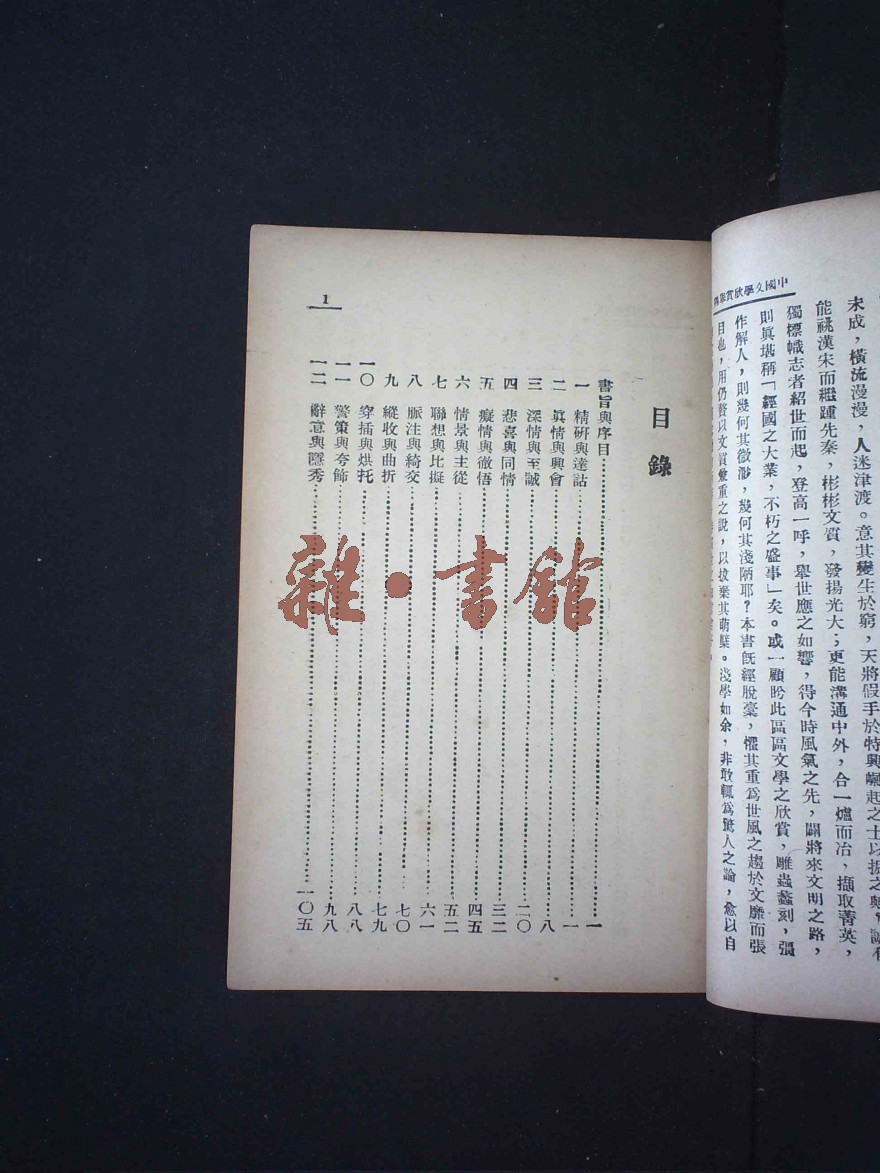 中國文學欣賞舉
未成，橫流漫漫，人迷津渡。意其變生於窮，天將假手於特興崛起之士以振之歟
能祧漢宋而繼踵先秦，彬彬文質，發揚光大；更能溝通中外，合一爐而冶，擷取菁英，
獨標幟志者紹世而起，登高一呼，舉世應之如響，得今時風氣之先，闢將來文明之路，
則眞堪稱「經國之大業，不朽之盛事」矣。或一顧盼此區區文學之欣賞，雕蟲蠡刻，强
作解人，則幾何其微渺，幾何其淺陋耶？本書旣經脫稾，懼其重爲世風之趨於文靡而張
目也，用仍贅以文質兼重之說，以拔棄其萌櫱。淺學如余，非敢輒爲驚人之論，愈以自
目錄
書旨與序目 一
一 精研與達詁 一
二 眞情與興會 八
三 深情與至誠 二〇
四 悲喜與同情 三二
五 癡情與徹悟 四五
六 情景與主從 五二
七 聯想與比擬 六一
八 脈注與綺交 七〇
九 縱收與曲折 七九
一〇 穿插與烘托 八八
一一 警策與夸飾 九八
一二 辭意與隱秀 一〇五
1
雜·書館